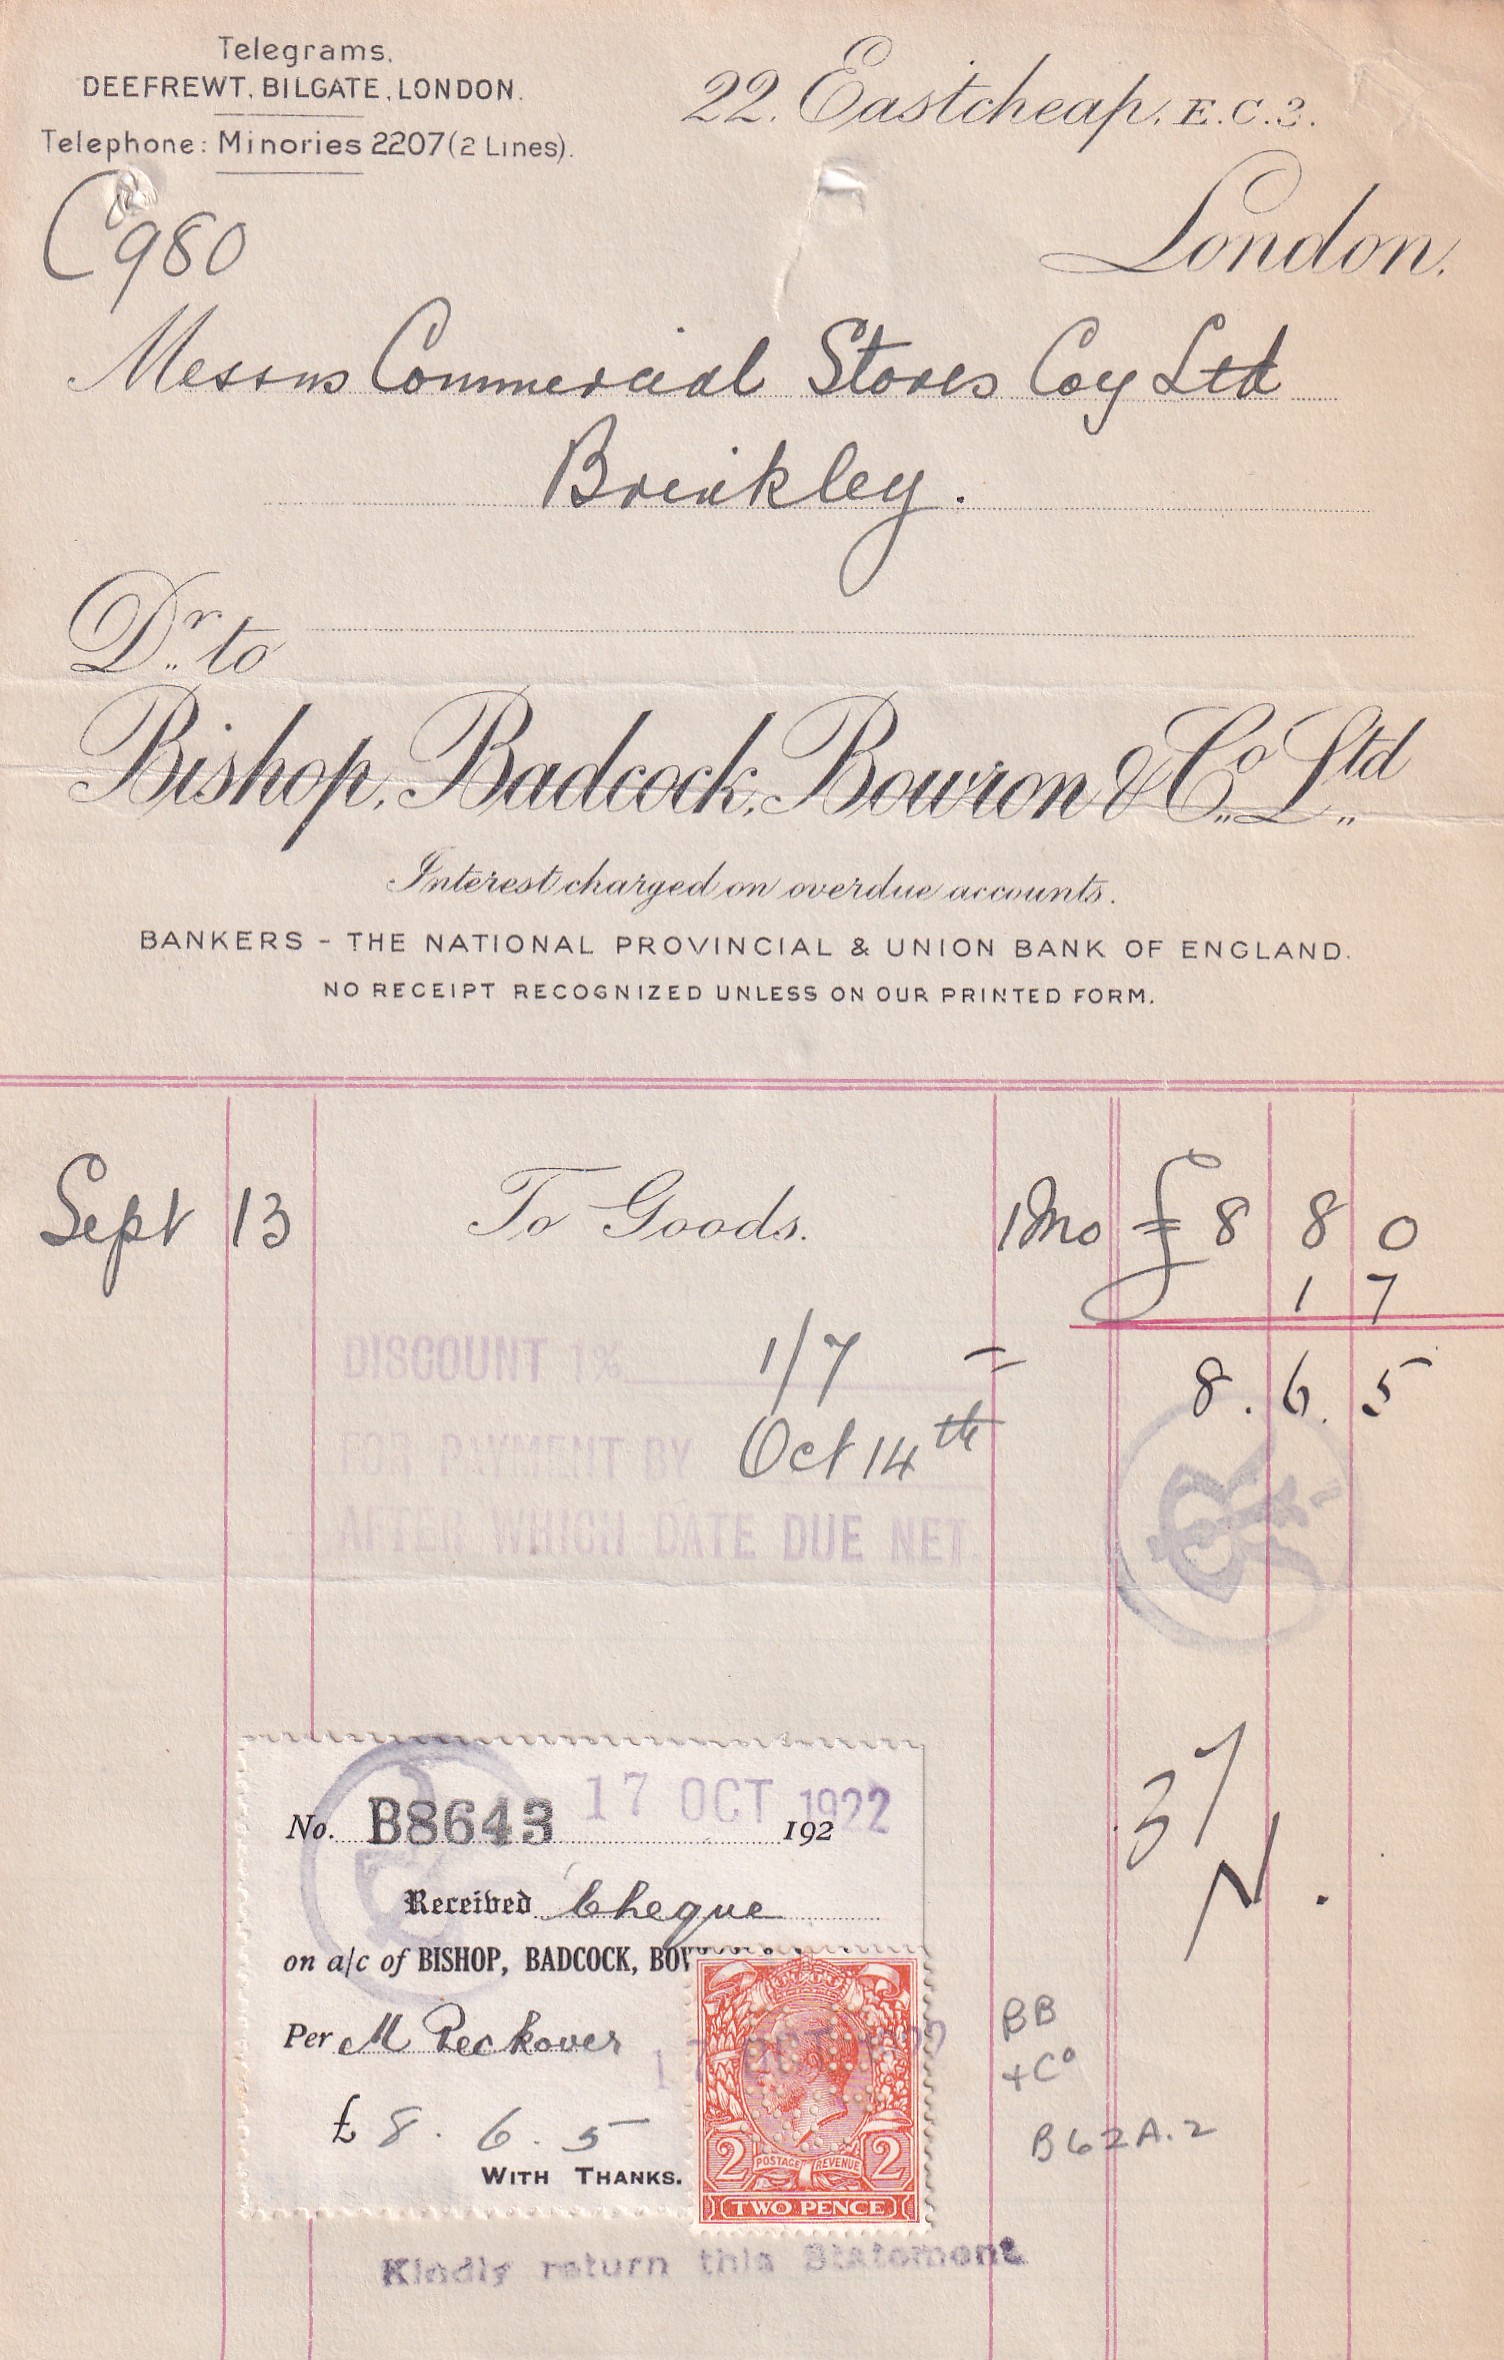 Telegrams.
DEEFREWT, BILGATE, LONDON.
Telephone: Minories 2207 (2 Lines).
22, Eastcheap, E.C.3.
London.
C980
Messrs Commercial Stores Coy Ltd
Brinkley.
Dr. to
Bishop, Badcock, Bowron & Co. Ltd.
Interest charged on overdue accounts.
BANKERS - THE NATIONAL PROVINCIAL & UNION BANK OF ENGLAND.
NO RECEIPT RECOGNIZED UNLESS ON OUR PRINTED FORM.
Sept 13 To Goods. 1 Mo £8 8 0
1 7
DISCOUNT 1% 1/7 = 8. 6. 5
FOR PAYMENT BY Oct 14th
AFTER WHICH DATE DUE NET
37
N.
No. B8643 17 OCT 1922 192
Received Cheque
on a/c of BISHOP, BADCOCK,
Per M Peckover
17 OCT 1922
£ 8. 6. 5
WITH THANKS.
2 POSTAGE REVENUE 2
TWO PENCE
BB
+ Co
B62A.2
Kindly return this Statement